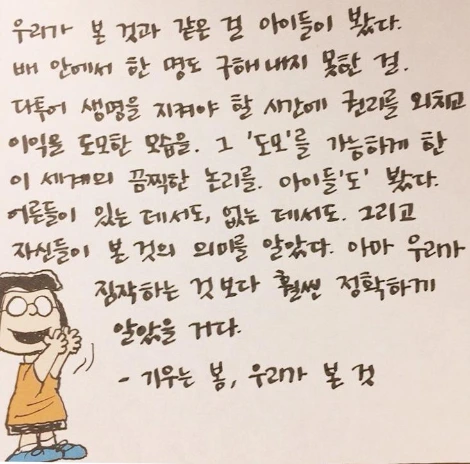 우리가 본 것과 같은 걸 아이들이 봤다.
배 안에서 한 명도 구해내지 못한 걸.
다투어 생명을 지켜야 할 시간에 권리를 외치고
이익을 도모한 모습을. 그 '도모'를 가능하게 한
이 세계의 끔찍한 논리를. 아이들'도' 봤다.
어른들이 있는 데서도, 없는 데서도. 그리고
자신들이 본 것의 의미를 알았다. 아마 우리가
짐작하는 것보다 훨씬 정확하게
알았을 거다.
- 기우는 봄, 우리가 본 것